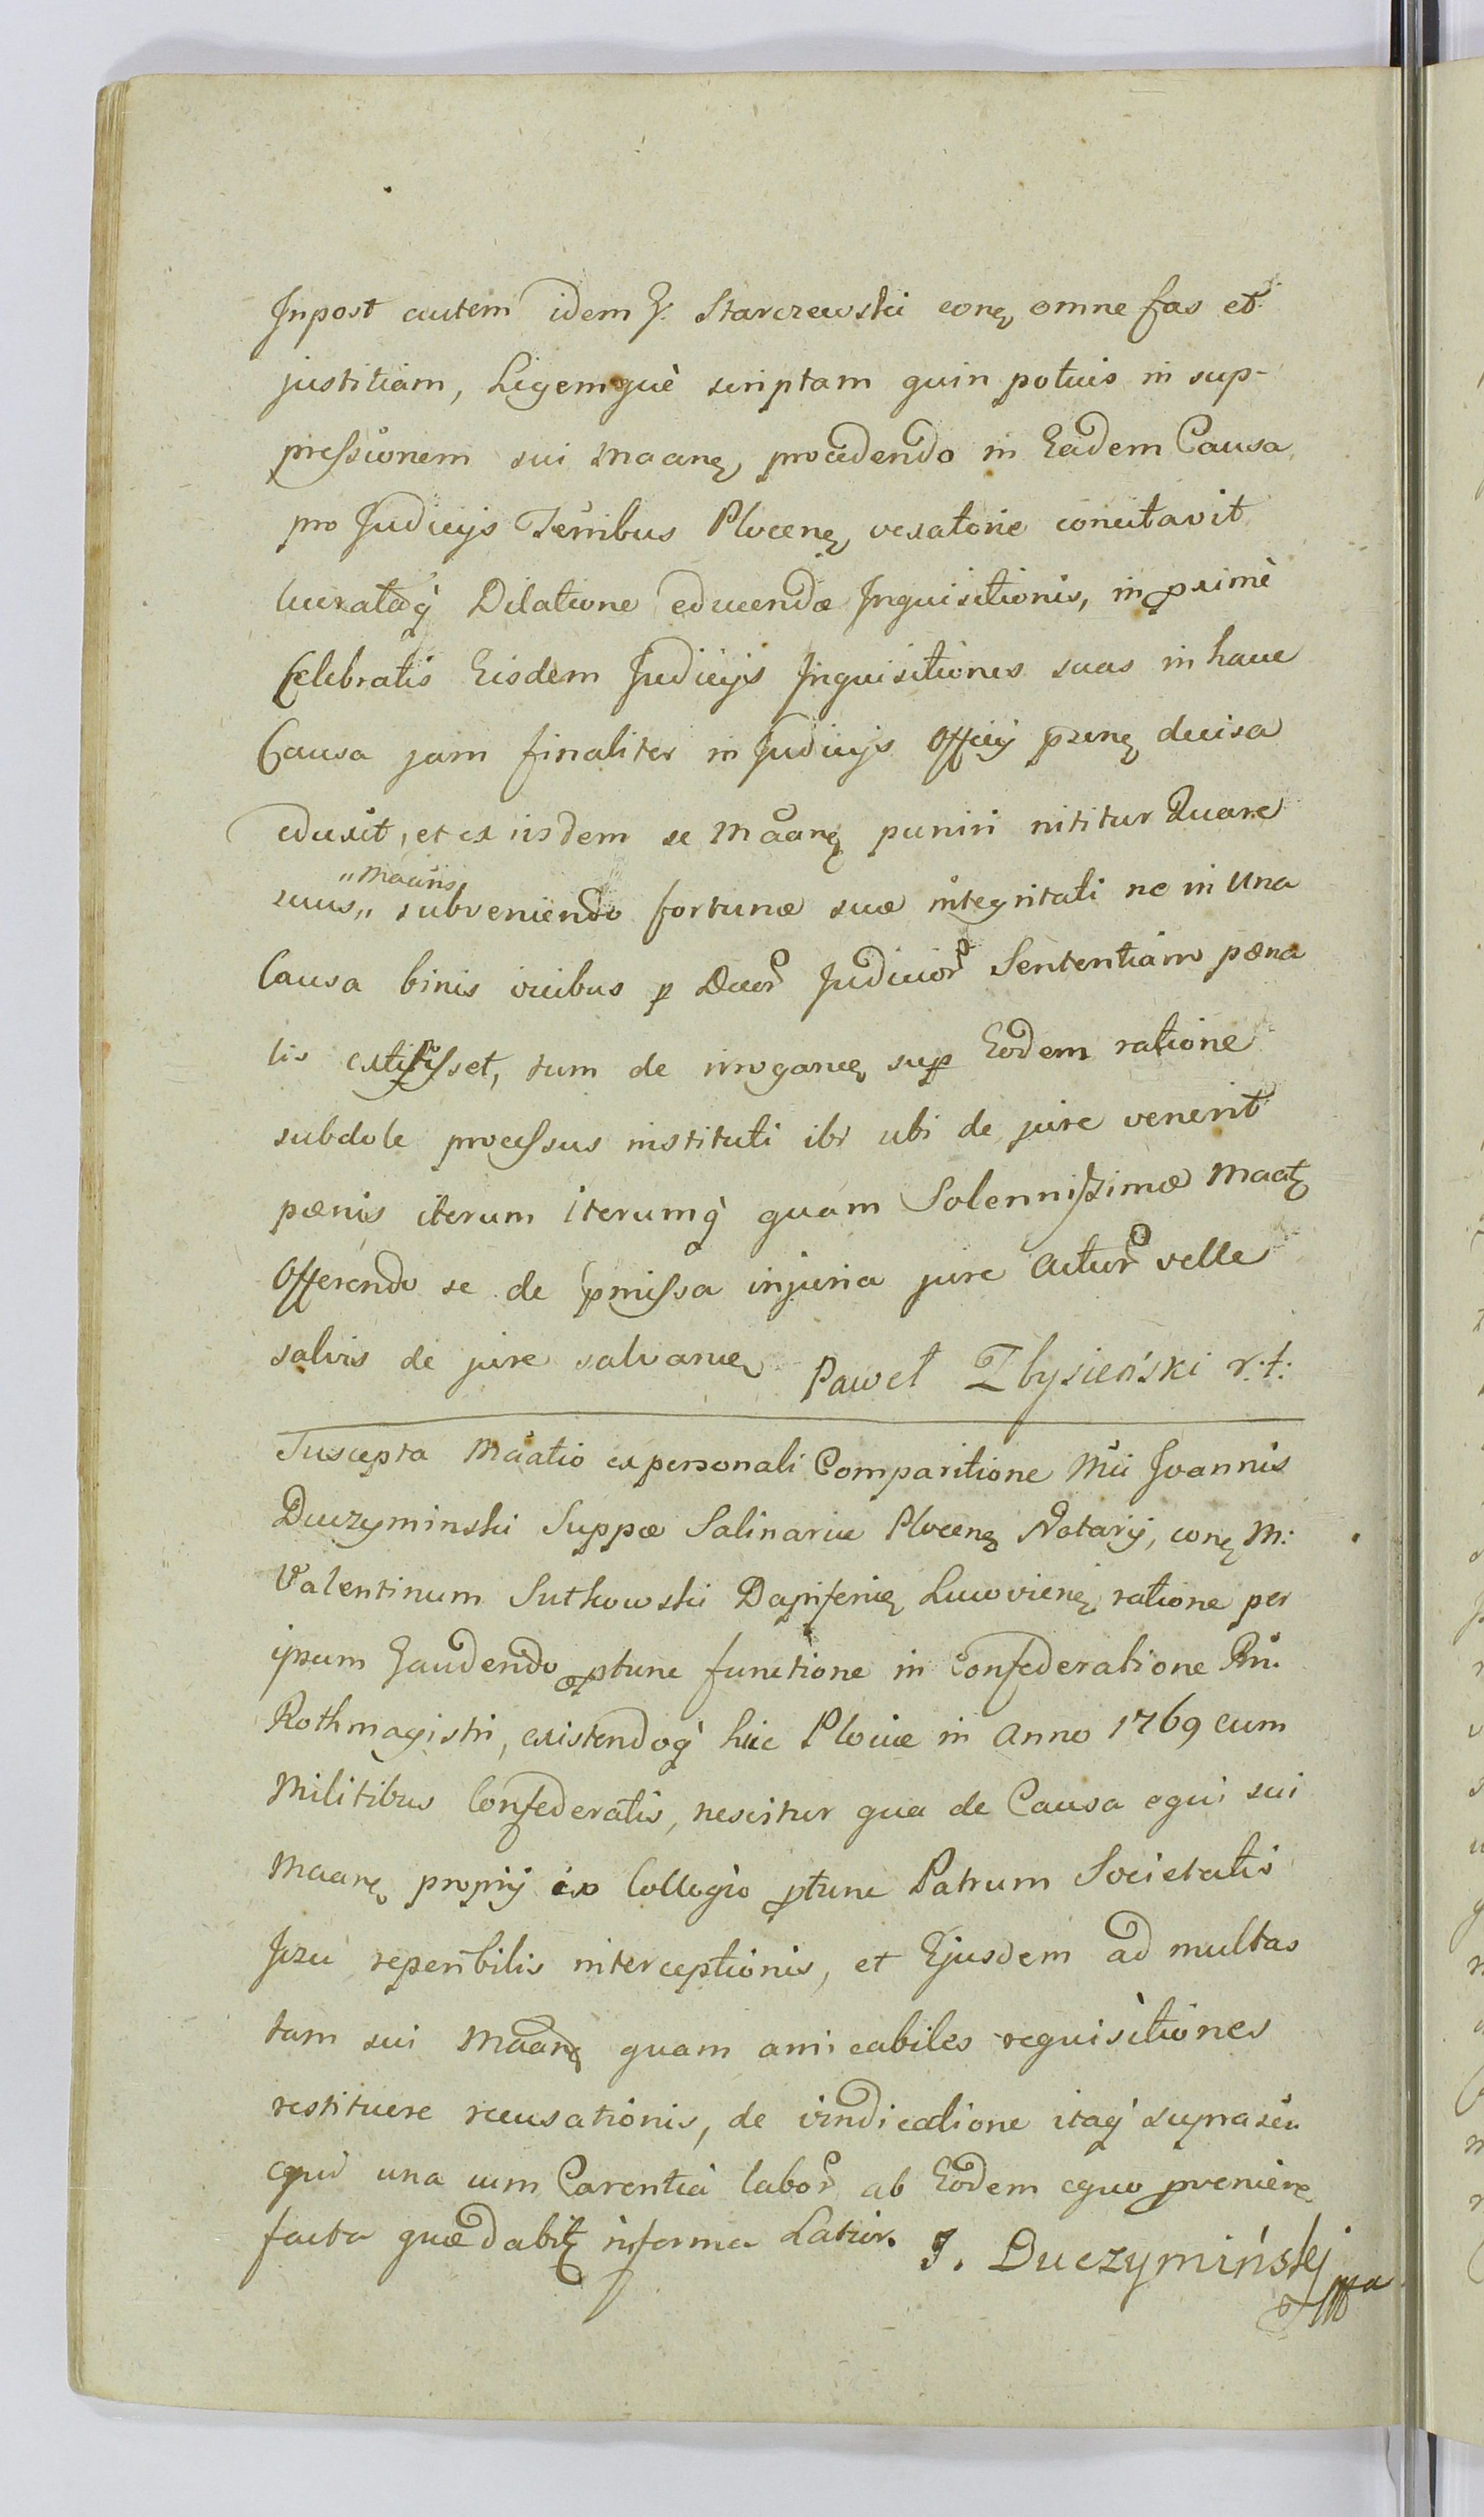 Inpost autem idem G. Starczewski conꝫ omne fas et
justitiam, Legemquè scriptam quin potuis in sup-
pressionem sui Maanꝫ, procedendo in Eadem Causa
pro Judicijs Terribus Plocenꝫ vexatorie concitavit
lucrataq̀ Dilatione educendæ Inquisitionis, in pximè
Celebratis Eisdem Judicijs Inquisitiones suas in hacce
Causa jam finaliter in Judicijs Officij pznꝫ decisa
eduxit, et ex iisdem se Maanꝫ puniri nititur Quare
suus „Maańs„ subveniendo fortunæ suæ integritati ne in Una
Causa binis vicibus p Duor Judicior Sententiam pœna
lis extitisset, tum de irrogancꝫ sup Eodem ratione
subdole processus instituti ibi ubi de jure venerit
pœnis iterum iterumq̀ quam Solennissimæ Maatꝫ
Offerendo se de pmissa injuria jure Actur velle
salvis de jure salvancꝫ Paweł Zbysieński r.t:
Suscepta Maatio ex personali Comparitione Mci Joannis
Duczyminski Suppæ Salinariæ Plocenꝫ Notarij, conꝫ M:
Valentinum Sutkowski Dapifericꝫ Lucovienꝫ ratione per
ipsum Gaudendo ptunc functione in Confederatione Rn.
Rothmagistri, existendoq̀ hic Plociæ in Anno 1769 cum
Militibus Confederatis, nescitur qua de Causa equi sui
Maanꝫ proprij ex Collegio ptunc Patrum Societatis
Jesu reperibilis interceptionis, et Ejusdem ad multas
tam sui Maanꝫ quam amicabiles requisitiones
restituere recusationis, de vindicatione itaq̀ suprascti
equi una cum Carentia labor ab Eodem equo pvenire
facta quæ dabitꝫ in forma Latior. J. Duczymińskj
mpa